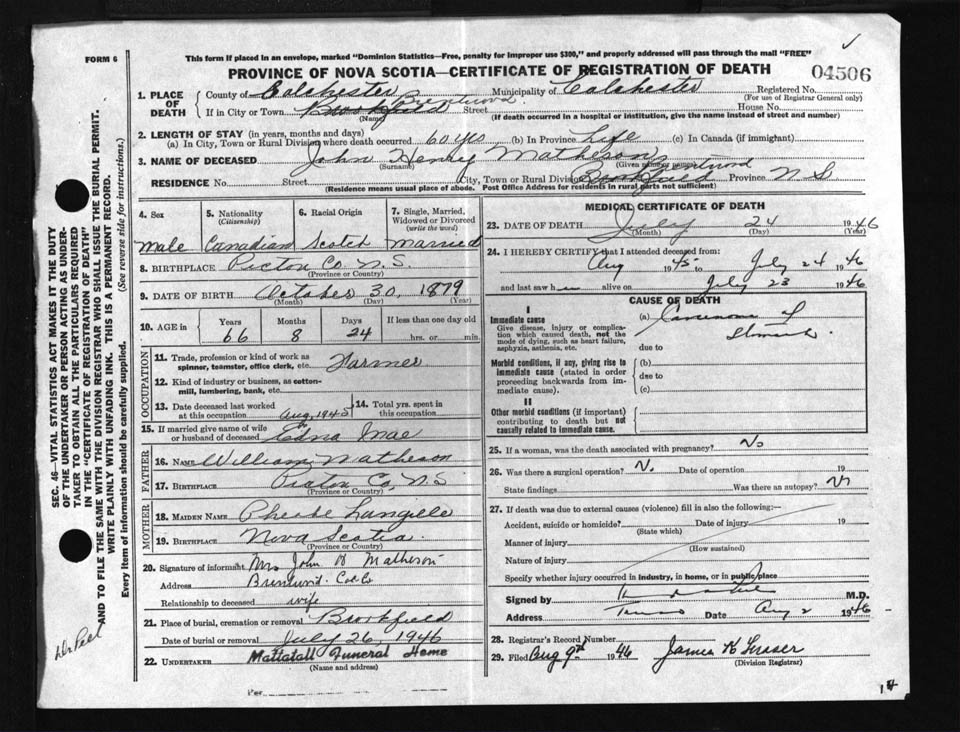 FORM 6
This form if placed in an envelope, marked "Dominion Statistics—Free, penalty for improper use $300," and properly addressed will pass through the mail "FREE"
PROVINCE OF NOVA SCOTIA—CERTIFICATE OF REGISTRATION OF DEATH
04506
1. PLACE OF DEATH
County of Colchester Municipality of Colchester Registered No.
(For use of Registrar General only)
If in City or Town Brookfield Brentwood Street House No.
(Name) (If death occurred in a hospital or institution, give the name instead of street and number)
2. LENGTH OF STAY (in years, months and days)
(a) In City, Town or Rural Division where death occurred 60 yrs (b) In Province Life (c) In Canada (if immigrant)
3. NAME OF DECEASED John Henry Matheson
(Surname) (Given name or names)
RESIDENCE No. Street City, Town or Rural Division Brookfield Brentwood Province N S
(Residence means usual place of abode. Post Office Address for residents in rural parts not sufficient)
4. Sex
5. Nationality
(Citizenship)
6. Racial Origin
7. Single, Married, Widowed or Divorced
(write the word)
Male Canadian Scotch Married
8. BIRTHPLACE Pictou Co. N.S.
(Province or Country)
9. DATE OF BIRTH October 30, 1879
(Month) (Day) (Year)
10. AGE in Years Months Days If less than one day old
66 8 24 hrs. or min.
OCCUPATION
11. Trade, profession or kind of work as
spinner, teamster, office clerk, etc. Farmer
12. Kind of industry or business, as cotton-
mill, lumbering, bank, etc.
13. Date deceased last worked
at this occupation Aug, 1945
14. Total yrs. spent in
this occupation
15. If married give name of wife
or husband of deceased Edna Mae
FATHER
16. NAME William Matheson
17. BIRTHPLACE Pictou Co, N.S
(Province or Country)
MOTHER
18. MAIDEN NAME Pheobe Langille
19. BIRTHPLACE Nova Scotia.
(Province or Country)
20. Signature of informant Mrs John H Matheson
Address Brentwood. Col Co
Relationship to deceased wife
21. Place of burial, cremation or removal Brookfield
Date of burial or removal July 26, 1946
22. UNDERTAKER Mattatall Funeral Home
(Name and address)
Per
MEDICAL CERTIFICATE OF DEATH
23. DATE OF DEATH July 24 1946
(Month) (Day) (Year)
24. I HEREBY CERTIFY that I attended deceased from:
Aug 1945 to July 24 1946
and last saw h alive on July 23 1946
CAUSE OF DEATH
I
Immediate cause
Give disease, injury or complica-
tion which caused death, not the
mode of dying, such as heart failure,
asphyxia, asthenia, etc.
(a) Carcinoma of
Stomach
due to
Morbid conditions, if any, giving rise to
immediate cause (stated in order
proceeding backwards from im-
mediate cause).
(b)
due to
(c)
II
Other morbid conditions (if important)
contributing to death but not
causally related to immediate cause.
25. If a woman, was the death associated with pregnancy? No
26. Was there a surgical operation? No Date of operation 19
State findings Was there an autopsy? No
27. If death was due to external causes (violence) fill in also the following:—
Accident, suicide or homicide? Date of injury 19
(State which)
Manner of injury
(How sustained)
Nature of injury
Specify whether injury occurred in industry, in home, or in public place
Signed by M.D.
Address Truro Date Aug 2 1946
28. Registrar's Record Number
29. Filed Aug 9th 1946 James K Fraser
(Division Registrar)
SEC. 46—VITAL STATISTICS ACT MAKES IT THE DUTY
OF THE UNDERTAKER OR PERSON ACTING AS UNDER-
TAKER TO OBTAIN ALL THE PARTICULARS REQUIRED
IN THE "CERTIFICATE OF REGISTRATION OF DEATH"
AND TO FILE THE SAME WITH THE DIVISION REGISTRAR WHO SHALL ISSUE THE BURIAL PERMIT.
WRITE PLAINLY WITH UNFADING INK. THIS IS A PERMANENT RECORD.
Every item of information should be carefully supplied. (See reverse side for instructions.)
Dr Peel